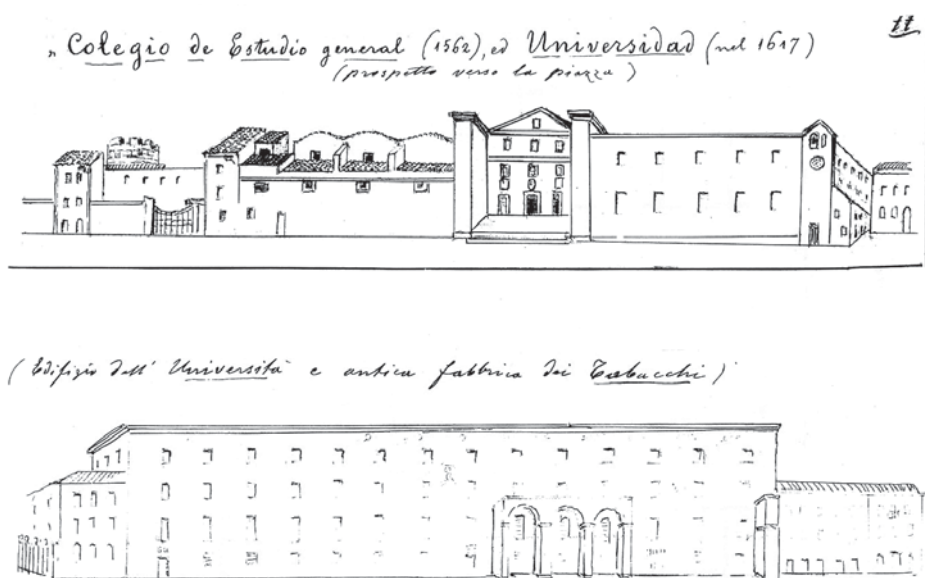 11
„ Colegio de Estudio general (1562), ed Universidad (nel 1617)
(prospetto verso la piazza)
(Edifizio dell' Università e antica fabbrica dei Tabacchi)